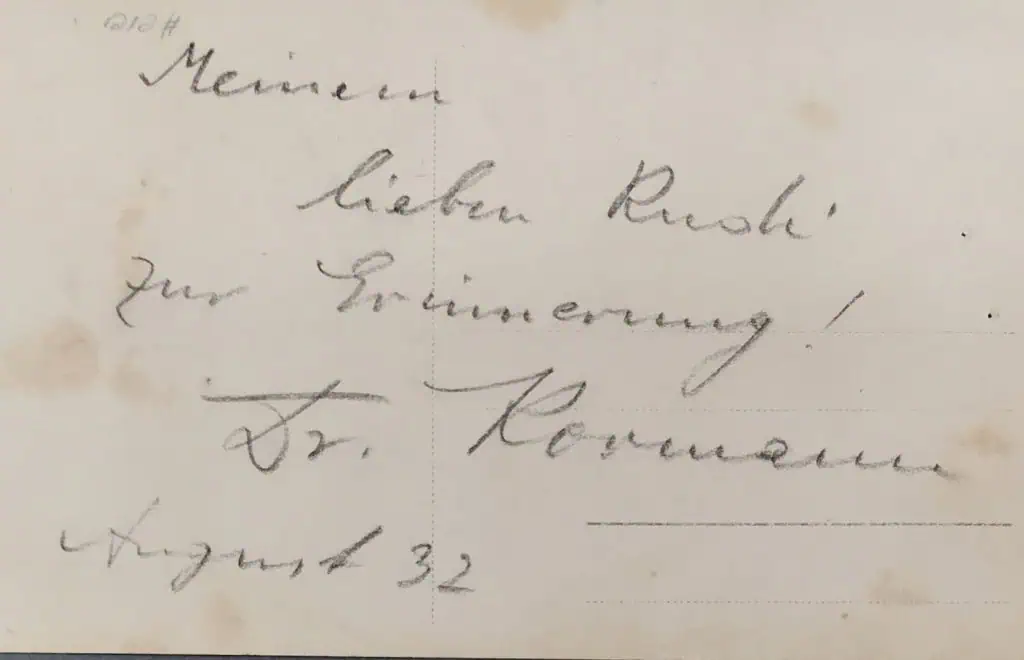 Meinem
lieben Rudi
zur Erinnerung!
Dr. Kormann
August 32